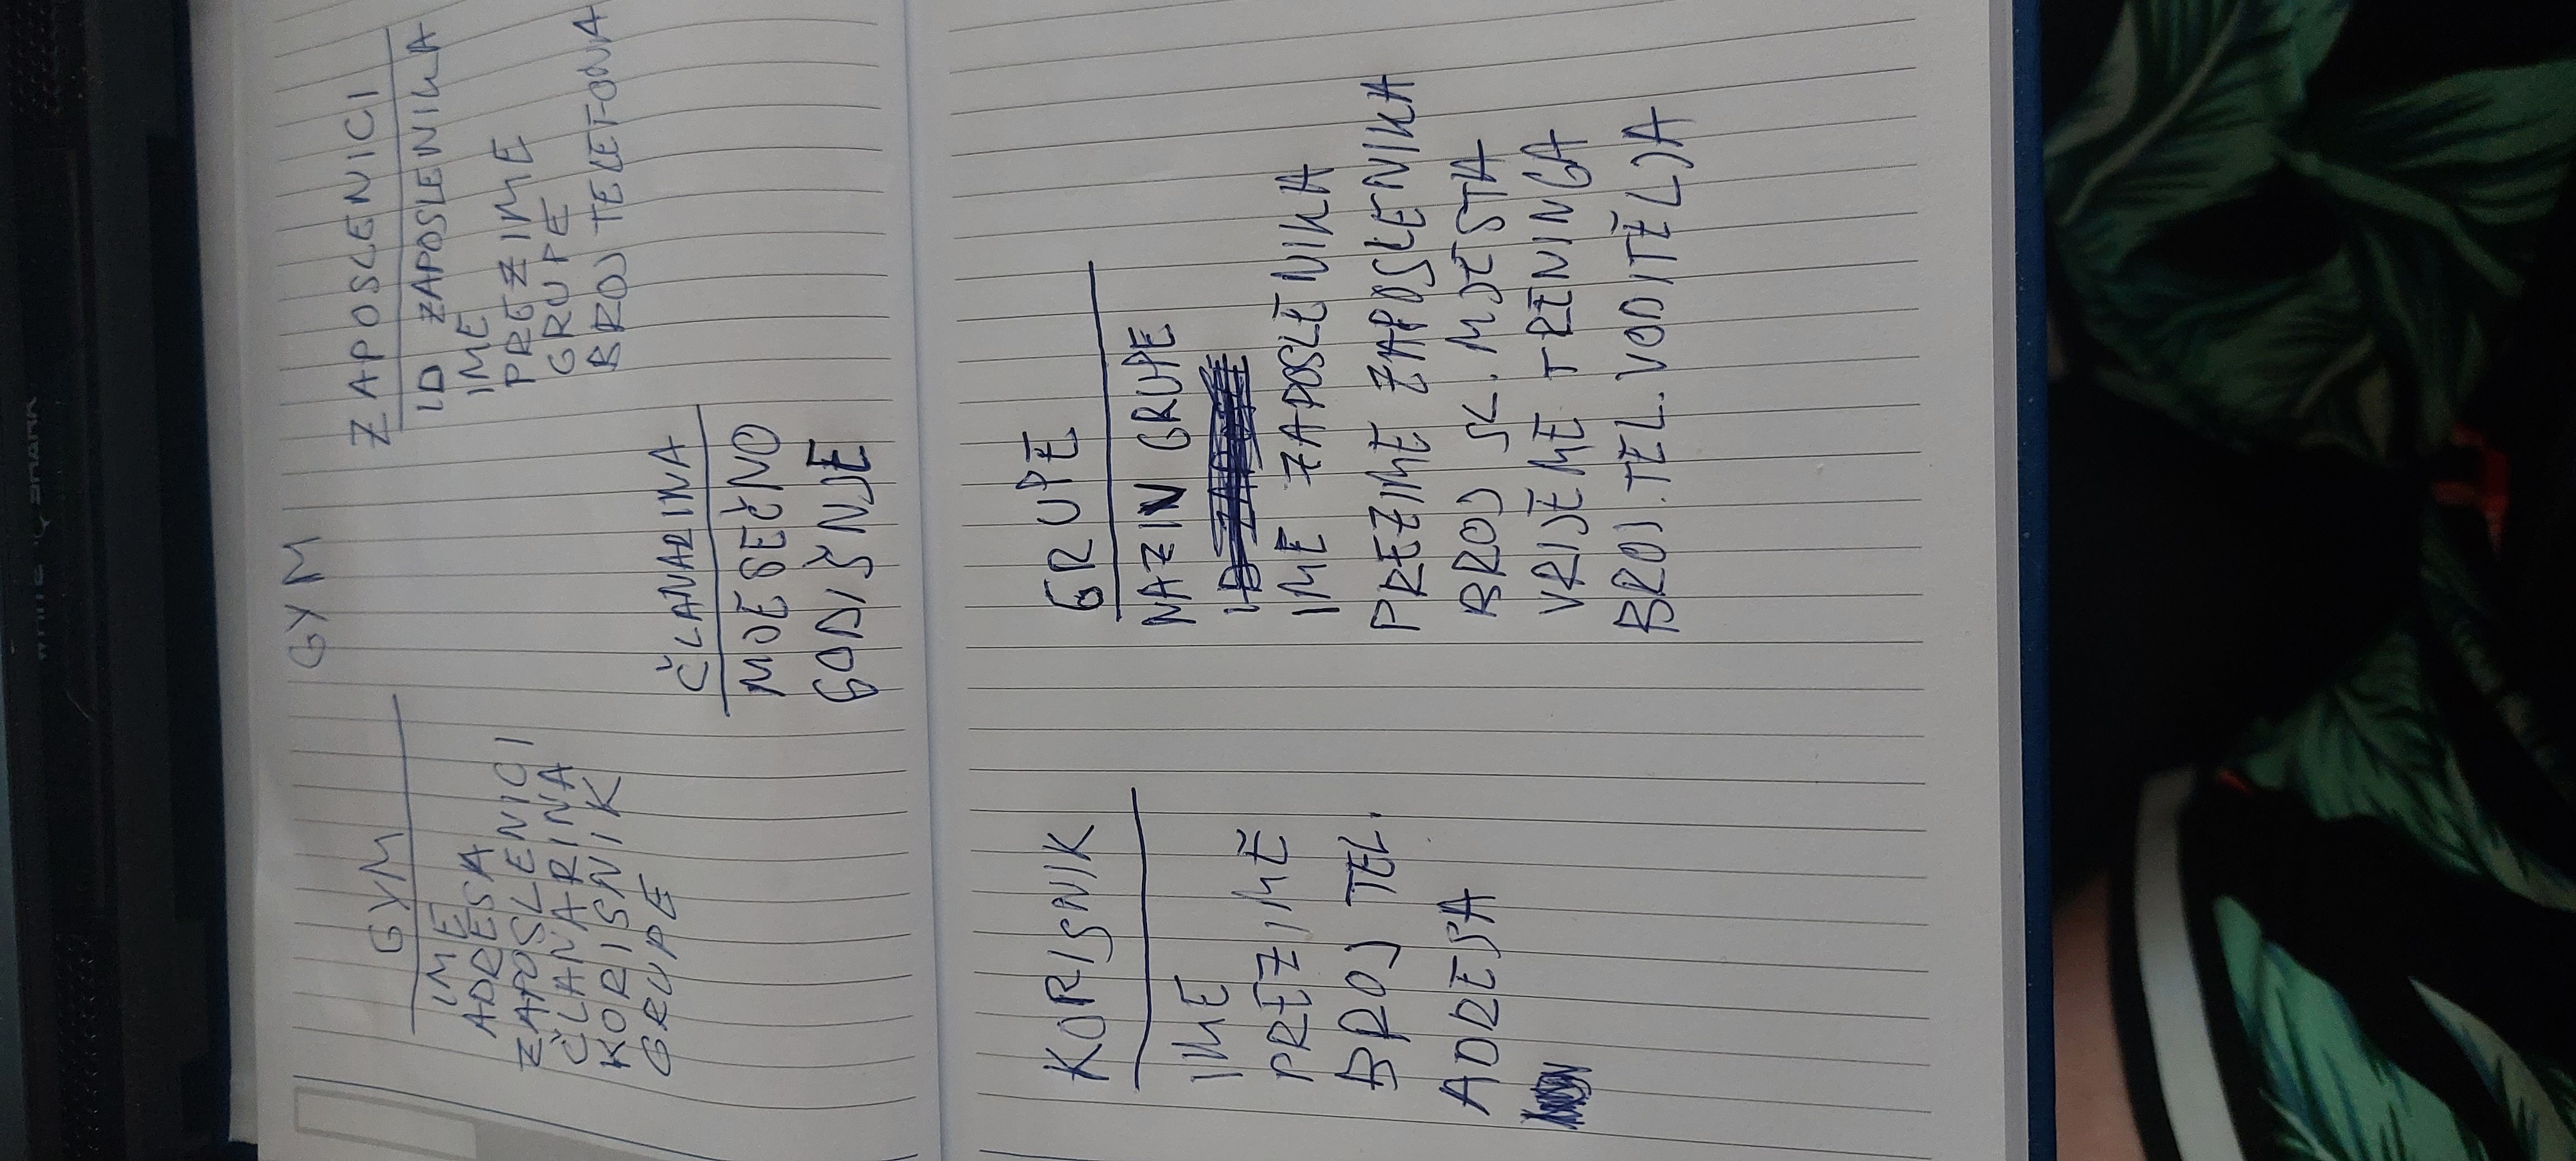 WHITE SHARK
GYM
GYM
IME
ADRESA
ZAPOSLENICI
ČLANARINA
KORISNIK
GRUPE
ZAPOSLENICI
ID ZAPOSLENIKA
IME
PREZIME
GRUPE
BROJ TELEFONA
ČLANARINA
MJESEČNO
GODIŠNJE
KORISNIK
IME
PREZIME
BROJ TEL.
ADRESA
GRUPE
NAZIV GRUPE
IME ZAPOSLENIKA
PREZIME ZAPOSLENIKA
BROJ SL. MJESTA
VRIJEME TRENINGA
BROJ.TEL.VODITELJA